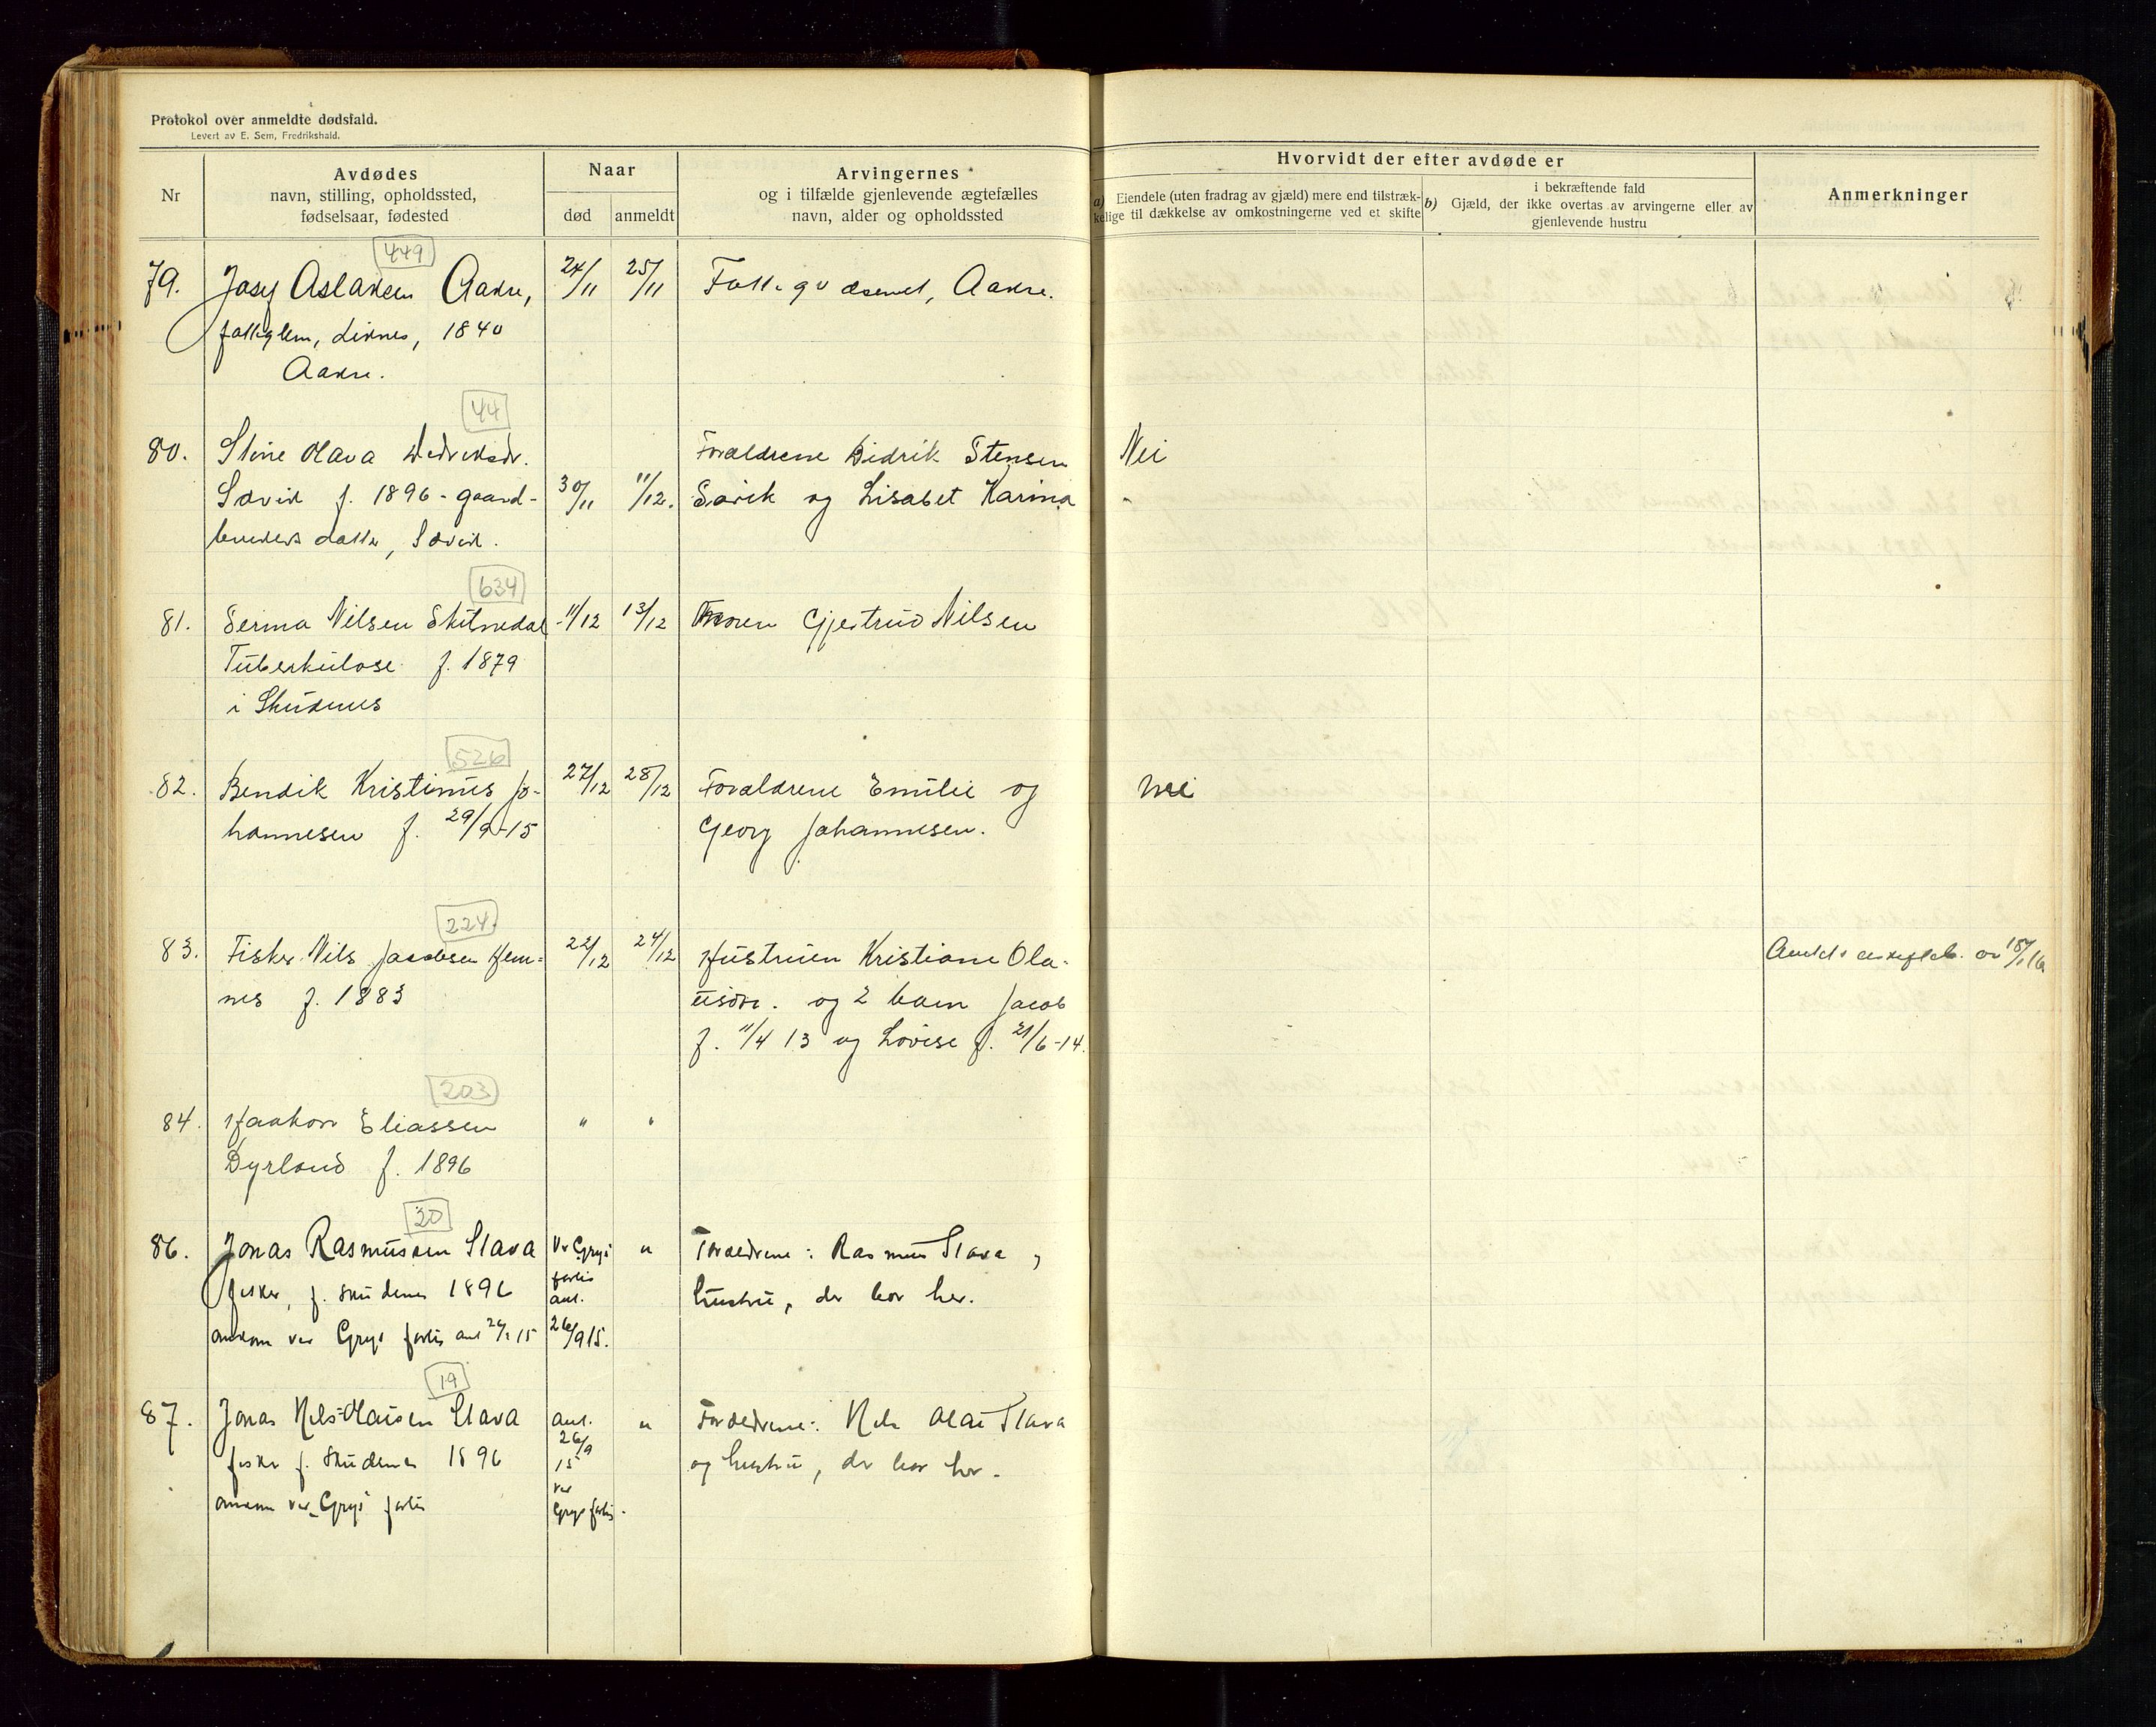 Protokol over anmeldte dødsfald.
Levert av E. Sem, Fredrikshald.
Nr
Avdødes
navn, stilling, opholdssted,
fødselsaar, fødested
Naar
død
anmeldt
Arvingernes
og i tilfælde gjenlevende ægtefælles
navn, alder og opholdssted
Hvorvidt der efter avdøde er
a) Eiendele (uten fradrag av gjæld) mere end tilstræk-
kelige til dækkelse av omkostningerne ved et skifte
b)
i bekræftende fald
Gjæld, der ikke overtas av arvingerne eller av
gjenlevende hustru
Anmerkninger
449
79. Josef Aslaksen Aakre, 24/11 25/11 Fattigvæsenet, Aakre.
fattiglem, 1840
Aakre.
44
80. Stine Olava Didriksdr. Forældrene Didrik Stensen Nei
Sævik f. 1896 - gaard- 30/11 11/12. Sævik og Lisabet Karina "
brukers datter, Sævik.
634
81. Serina Nilsen Skitnedal 11/12 13/12 Moren Gjertrud Nilsen
Tuberkulose f. 1879
i Skudenes
526
82. Bendik Kristinius Jo- 27/12 28/12 Forældrene Emilie og nei
hannesen f. 29/9-15 Georg Johannesen.
224
83. Fisker Nils Jacobsen Hem- 22/12 24/12 Hustruen Kristiane Ola-
nes f. 1883 usdtr. og 2 barn Jacob
f. 11/4 13 og Lovise f. 21/6-14.
203
84. Haakon Eliassen " "
Dyrland f. 1896
20
86. Jonas Rasmussen Stava Ved Gryt " Forældrene: Rasmus Stava,
forlis
fisker, f. Skudenes 1896 ant. hustru, der bor her.
omkom ved Gryt forlis ant 26/9 15 26/9 15.
19
87. Jonas Nils Olausen Stava ant. " Forældrene: Nils Olai Stava
26/9
fisker f. Skudenes 1896 15 og hustru, der bor her.
ved
omkom ved Gryt forlis Gryt forlis.